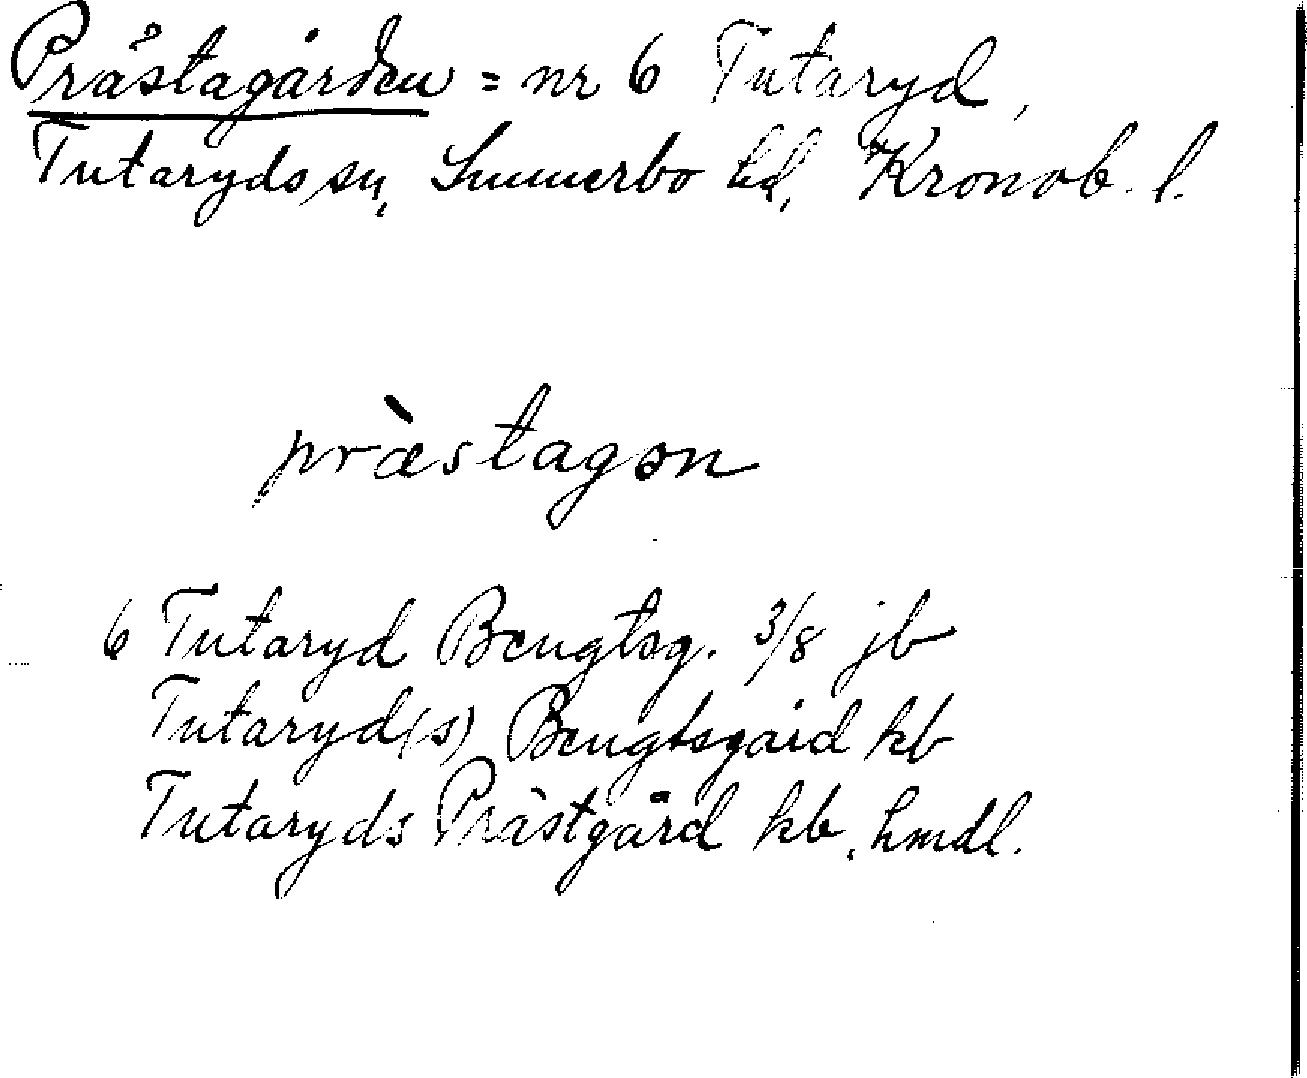 Prästagården = nr 6 Tutaryd,
Tutaryds sn, Sunnerbo hd, Kronob. l.
præ̀stagɔn
6 Tutaryd Bengtsg. 3/8 jb
Tutaryd(s) Bengtsgård kb
Tutaryds Prästgård kb, hmdl.